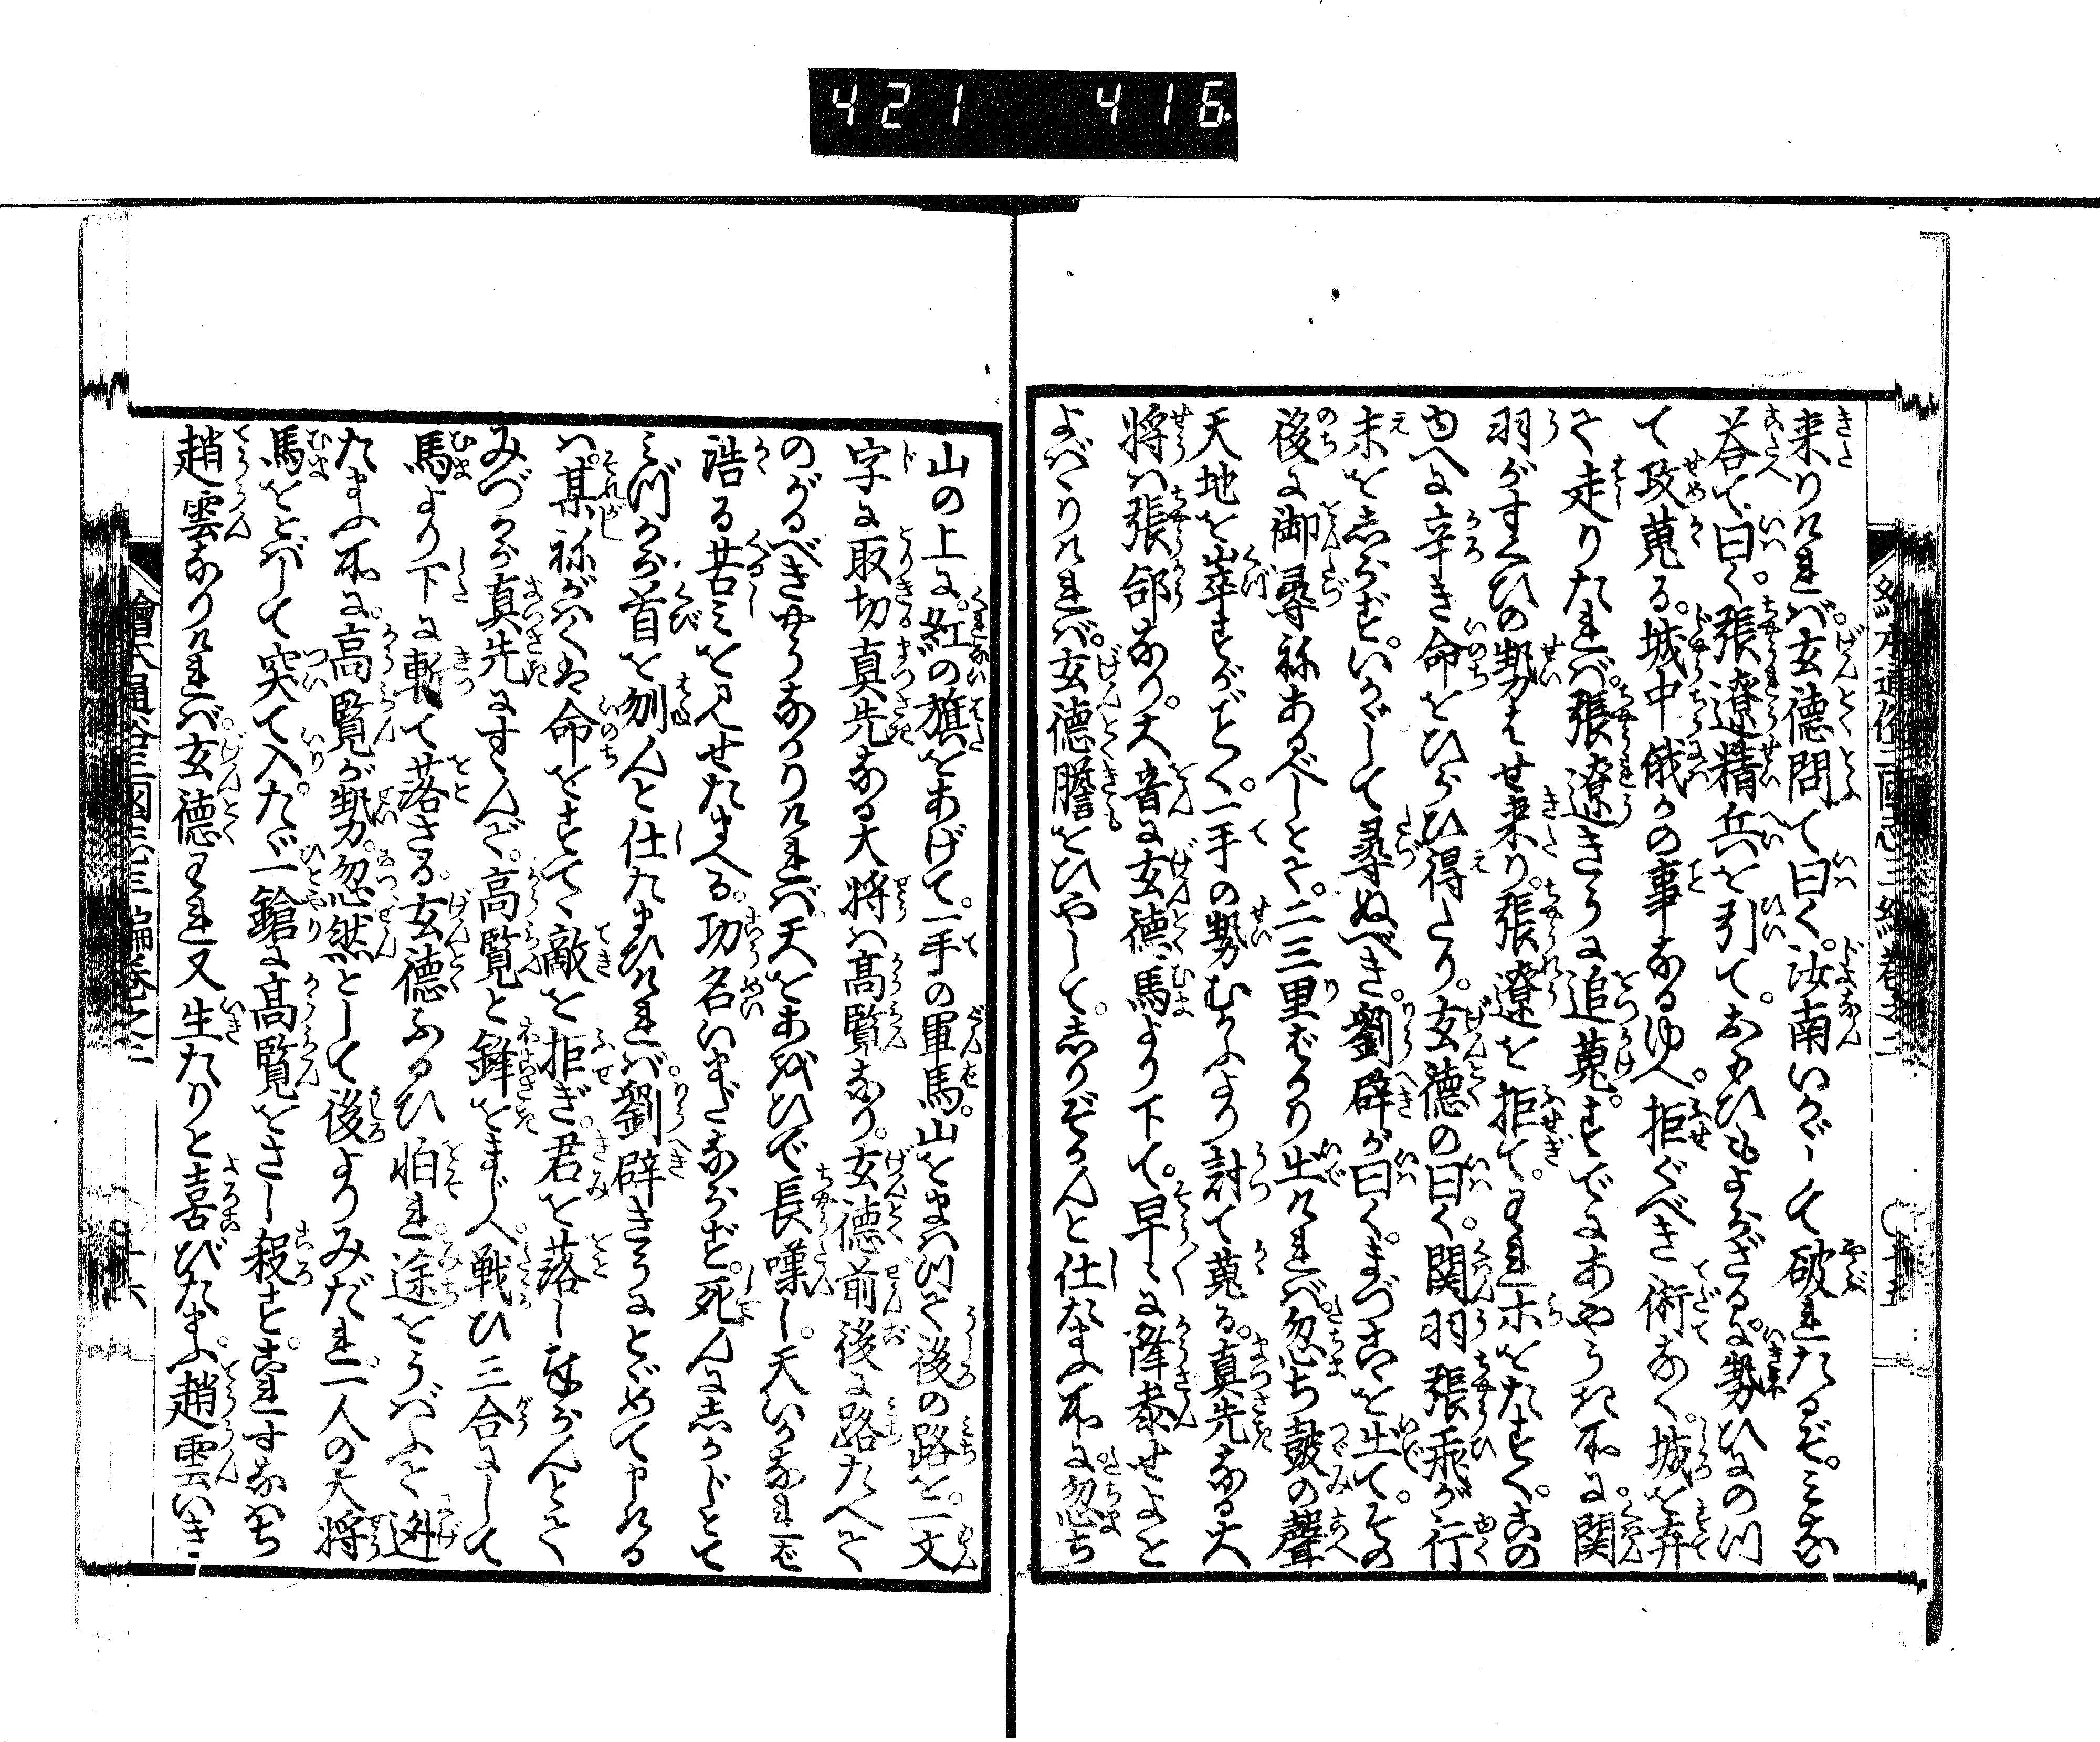 421 416
来りければ。玄德問て曰く。汝南いかゞして破れたるぞ。ミな
荅て曰く。張遼精兵を引て。おもひもよらざるに勢ひにのつ
て攻蒐る。城中俄の事なるゆへ。拒ぐべき術なく。城を弃
て走りたれば。張遼きうに追蒐。すでにあやうき所に。関
羽がすくひの勢はせ来り。張遼を拒て。それホをたすく。この
ゆへに辛き命をひろひ得たり。玄德の曰く。関羽張飛が行
末をしらず。いかゞして尋ぬべき。劉辟が曰く。まづこゝを出て。その
後に御尋ねあるべしとて。二三里ばかり出ければ忽ち鼓の聲
天地を崒すがごとく。一手の勢むかふより討て蒐る。真先なる大
将ハ張郃なり。大音に玄德馬より下て。早〻に降参せよと
よばゝりければ。玄德膽をひやして。しりぞかんと仕たまふ所に忽ち
山の上に。紅の旗をあげて。一手の軍馬。山をまハつて後の路を。一文
字に取切真先なる大将ハ高覧なり。玄德前後に路たへて
のがるべきやうなかりければ天をあふひで長嘆し。天いかなれば
誥る苦ミを見せたまへる。功名いまだならず。死んにしかじとて
ミづから首を刎んと仕たまひければ。劉辟きうにとゞめて申ける
ハ。某ねがハくは命をすてゝ敵を拒ぎ。君を落し奉らんとて
みづから真先にすゝんで。高覧と鋒をまじへ。戦ひ三合にして
馬より下に斬て落さる。玄德ふるひ怕れ。途をうばふて迯
たまふ所に。高覧が勢。忽然として後よりみだれ。一人の大将
馬をとばして突て入。たゞ一鎗に高覧をさし殺す。これすなハち
趙雲なりければ。玄德それ又生たりと喜びたまふ。趙雲いき